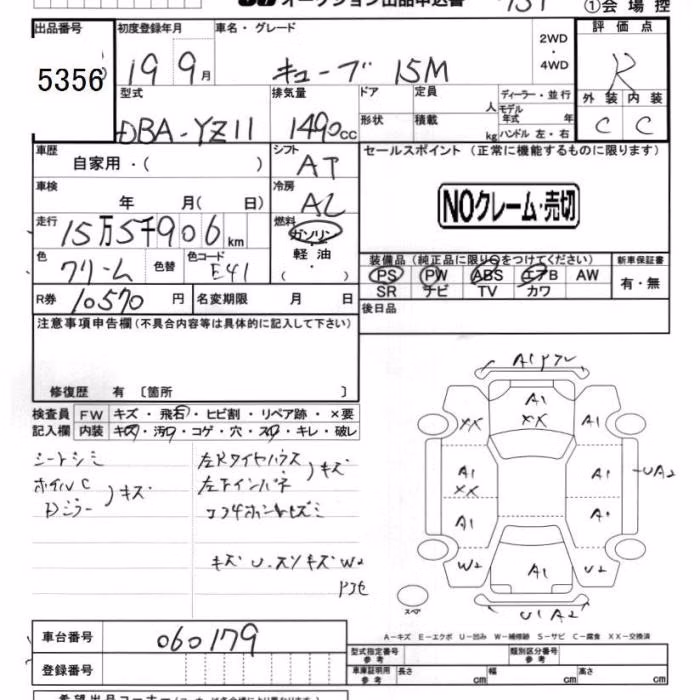 オークション出品申込書
①会場控
出品番号 初度登録年月 車名・グレード 評価点
5356 19 9月 キューブ 15M 2WD・4WD R
型式 排気量 ドア 定員 人 ディーラー・並行 外装 内装
DBA-YZ11 1490cc 形状 積載 kg モデル年式 年 ハンドル 左・右 C C
車歴 シフト セールスポイント (正常に機能するものに限ります)
自家用・( ) AT
車検 冷房 NOクレーム・売切
年 月( 日) AC
走行 燃料
15万5千906km ガソリン・軽油・( )
色 クリーム 色替 色コード E41
装備品(純正品に限り○をつけてください) 新車保証書
PS PW ABS エアB AW 有・無
SR ナビ TV カワ
R券 10570円 名変期限 月 日 後日品
注意事項申告欄(不具合内容等は具体的に記入して下さい)
修復歴 有 〔箇所 〕
検査員 FW キズ・飛石・ヒビ割・リペア跡・×要
記入欄 内装 キズ・汚れ・コゲ・穴・スレ・キレ・破レ
シートシミ
ホイルC
Dミラー
キズ
左Rタイヤハウス
左Fインパネ
キズ
キズ U・スリキズ W2
A1
A1
XX
XX
A1
A1
XX
A1
UA2
A1
A1
W2
A1
U2
U1 A2
スペア
A-キズ E-エクボ U-凹み W-補修跡 S-サビ C-腐食 XX-交換済
車台番号 060179
型式指定番号 参考 類別区分番号 参考
登録番号
車庫証明用 参考 長さ cm 幅 cm 高さ cm